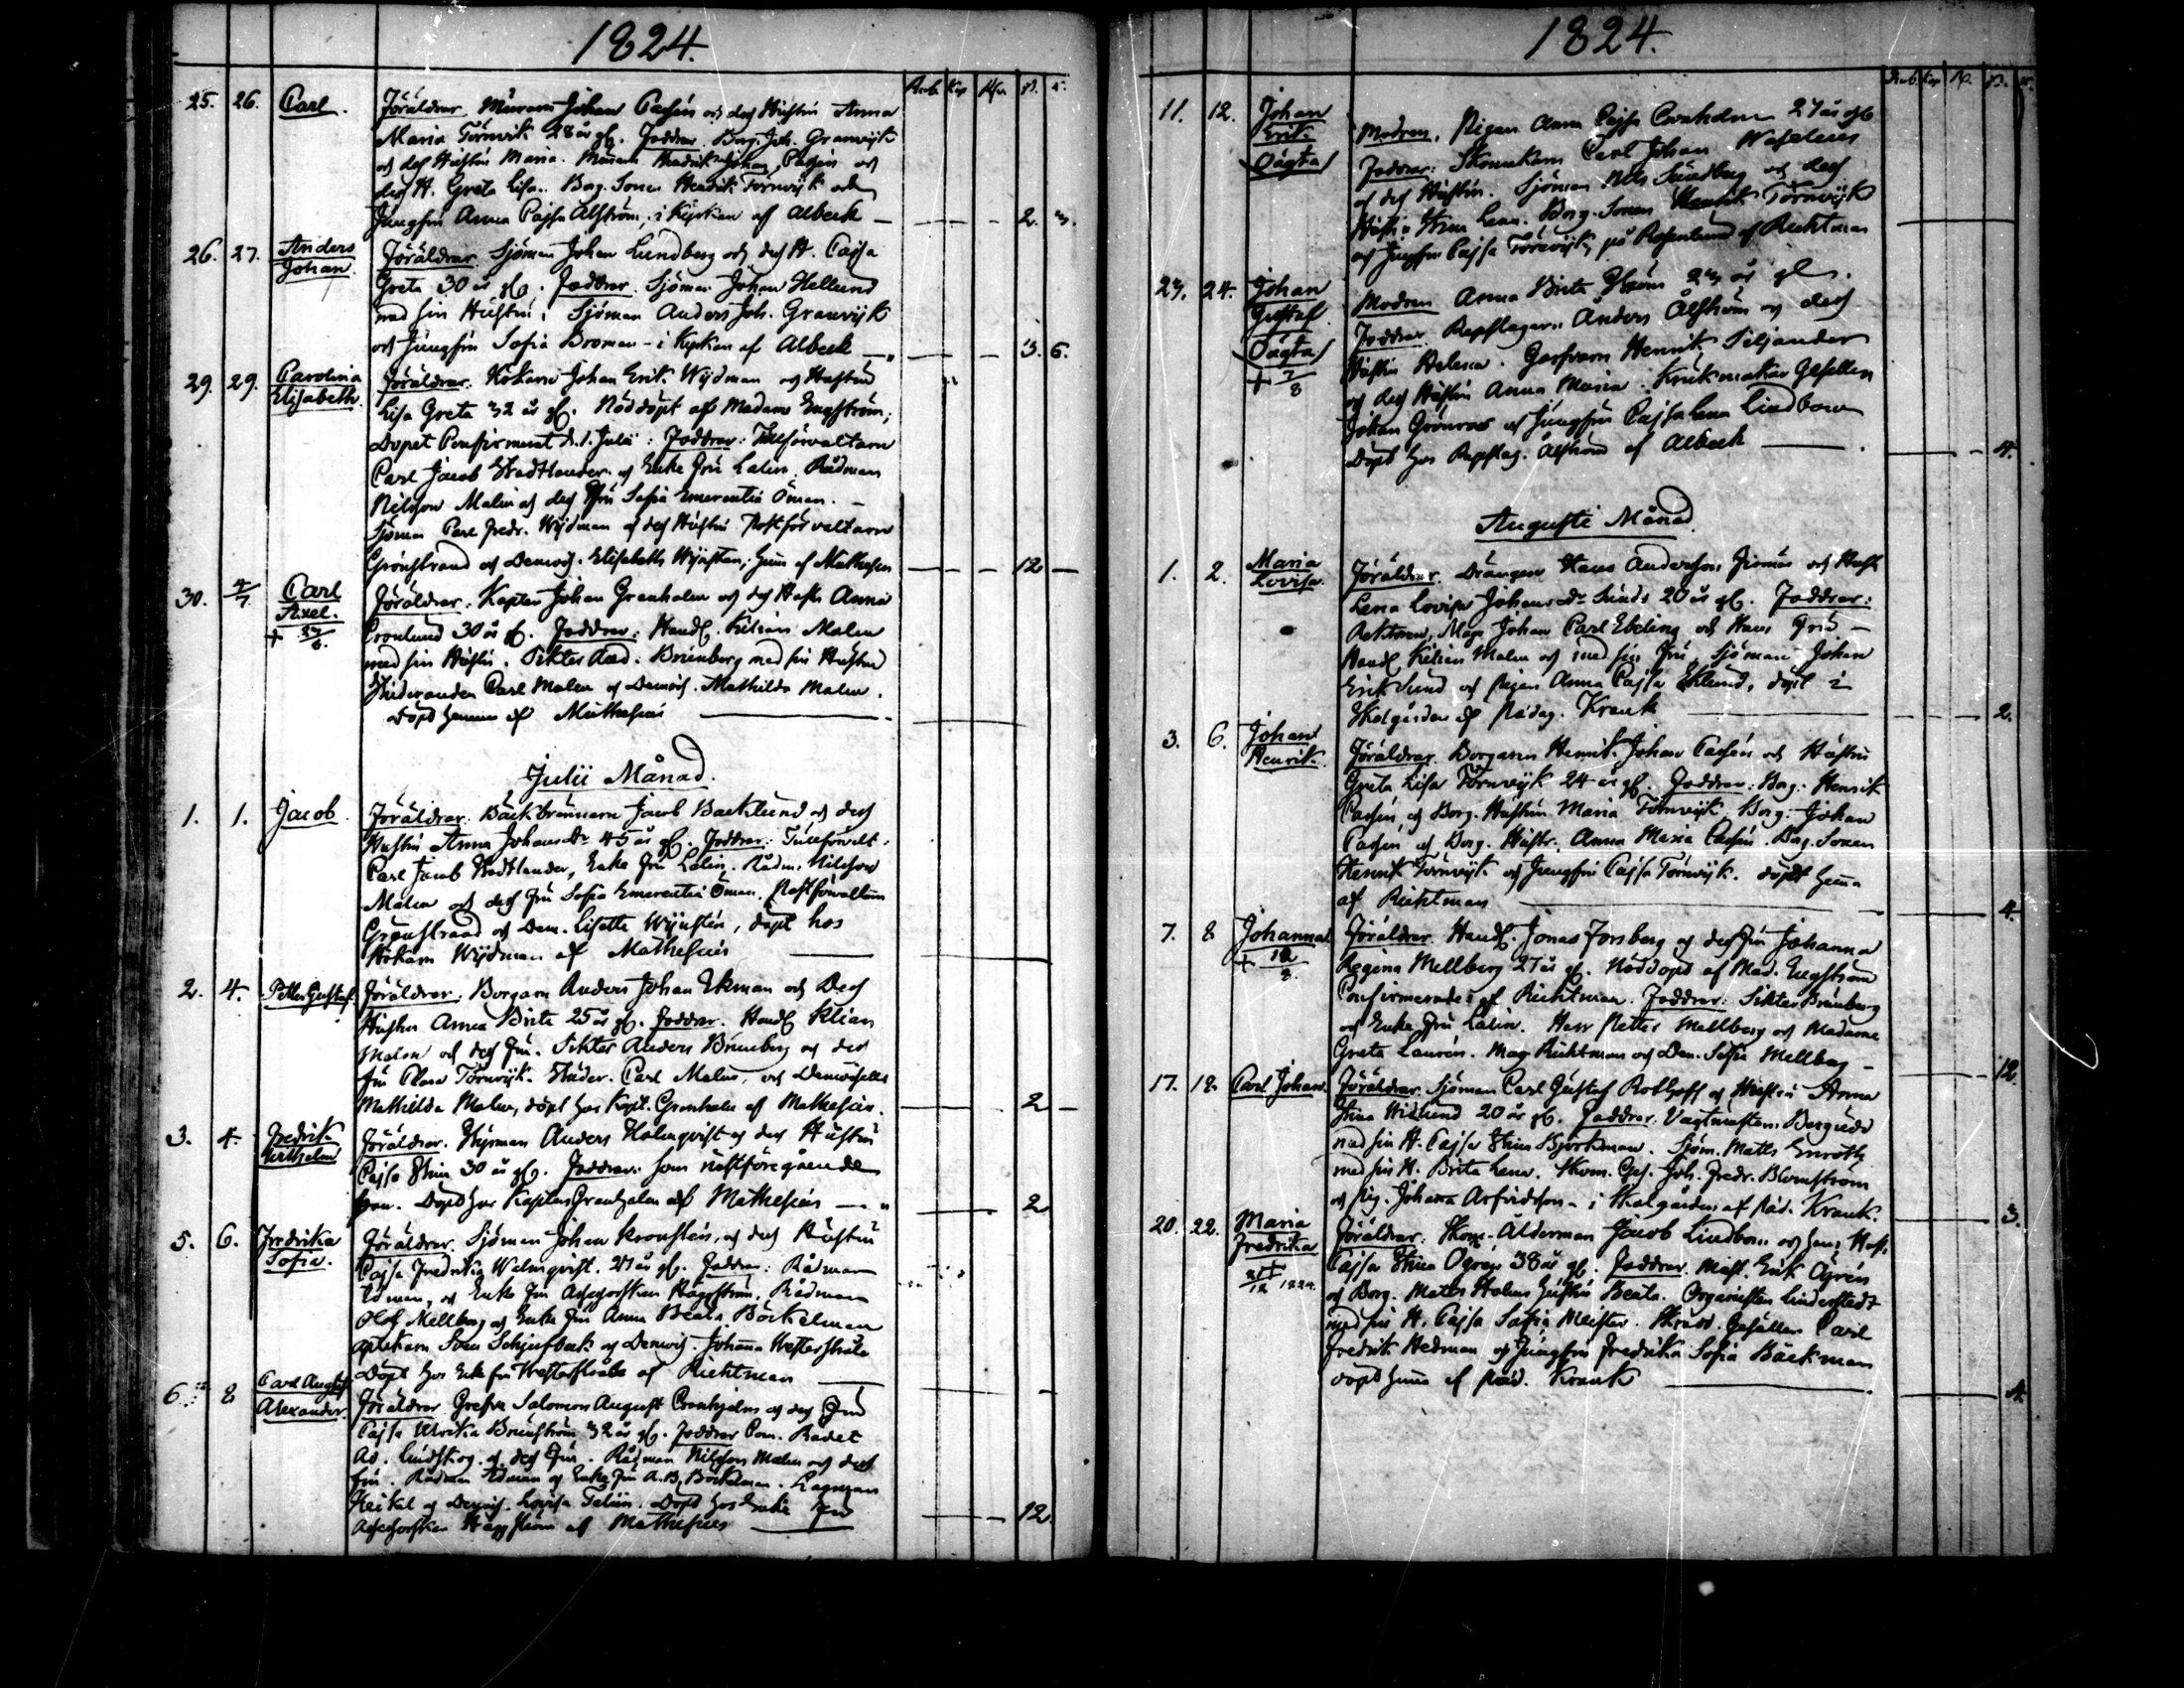 1824.
25. 26. Carl. Föräldrar. Muraren Johan Casén och des Hustru Anna
Maria Törnvik 28 år gl. Faddrar. Borg. Joh. Granvijk
och des Hustru Maria. Muraren Hendrik Johan Casen och
des H. Greta Lisa. Borg. Sonen Hendrik Törnvijk och
Jungfru Anna Cajsa Alström, i Kyrkan af Albeck — 2. 3.
26. 27. Anders Johan. Föräldrar. Sjöman Johan Lundberg och des H. Cajsa
Greta 30 år gl. Faddrar. Sjöman Johan Hellund
med sin Hustru, Sjöman Anders Joh. Granvijk
och Jungfru Sofia Broman — i Kyrkan af Albeck — 3. 6.
29. 29. Carolina Elisabeth. Föräldrar. Hökaren Johan Erik Wijdman och Hustrun
Lisa Greta 32 år gl. Nöddöpt af Madame Engström,
Dopet Confirmerat d. 1. Julii: Faddrar: Tullförvaltaren
Carl Jacob Stadtlander och Enke Fru Lalin. Rådman
Nilsson Malm och des Fru Sofia Emerentia Öman. —
Sjöman Carl Fredr. Wijdman och des Hustru Postförvaltaren
Grönstrand och Demois. Elisabeth Wijnsten, hema af Mathesius — 12 —
30. 4/7 Carl Axel. + Föräldrar. Kapten Johan Granholm och des Hustr. Anna
Cronlund 30 år gl. Faddrar: Handl. Kilian Malm
med sin Hustru. Sikter And: Brunberg med sin Hustru
Studeranden Carl Malm och Demois. Mathilda Malm.
Döpt hemma af Mathesius —
Julii Månad.
1. 1. Jacob. Föräldrar. Bäckbrännaren Jacob Backlund och des
Hustru Anna Johansdr 45 år gl. Faddrar: Tullförvalt.
Carl Jacob Stadtlander, Enke Fru Lalin. Rådm. Nilsson
Malm och des Fru Sofia Emerentia Öman. Postförvaltaren
Grönstrand och Dem. Lisette Wijnstén, döpt hos
Hökaren Wijdman af Mathesius —
2. 4. Petter Gustaf. Föräldrar. Borgaren Anders Johan Ekman och Des
Hustru Anna Brita 25 år gl. Faddrar. Handl. Kilian
Malm och des Fru. Sikter Anders Brunberg och des
Fru Clara Törnvijk. Studer. Carl Malm, och Demoiselle
Mathilda Malm, döpt hos Kapt. Granholm af Mathesius. — 2 —
3. 4. Fredrik Wilhelm Föräldrar. Styrman Anders Holmqvist och des Hustru
Cajsa Stina 30 år gl. Faddrar: som nästföregående
barn. Döpt hos Kapten Granholm af Mathesius — 2
5. 6. Fredrika Sofia. Föräldrar. Sjöman Johan Kronstén, och des Hustru
Cajsa Fredrika Walmqvist. 27 år gl. Faddrar: Rådman
Edman, och Enke Fru Assessorskan Häggström. Rådman
Olof Mellberg och Enke Fru Anna Beata Böckelman
Apotekaren Sven Schjerfbeck och Demois. Johanna Westerstråle
Döpt hos Enke Fru Westerstråle af Richtman —
6. 8 Carl August Alexander. Föräldrar. Grefve Salomon August Cronhjelm och des Fru
Cajsa Ulrika Brunström 32 år gl. Faddrar Com. Rådet
Ad. Lindskog och des Fru. Rådman Nilsson Malm och des
Fru. Rådman Edman och Enke Fru A. B. Böckelman. Lagman
Heikel och Demois. Lovisa Falein. Döpt hos Enke Fru
Assessorskan Häggström af Mathesius — 12.
1824.
11. 12. Johan Erik Oägta Modren. Pigan Anna Cajsa Cronholm 27 år gl.
Faddrar: Skomakaren Carl Johan Waselius
och des Hustru. Sjöman Nils Sundberg och des
Hustru Stina Lena. Borg. Sonen Henrik Törnvijk
och Jungfru Cajsa Törnvijk, på Rosenlund af Richtman
23. 24. Johan Gustaf Oägta + 7/8 Modren Anna Brita Ström 23 år gl.
Faddrar Repslagaren Anders Ålström och des
Hustru Helena. Garfvaren Henrik Siljander
och des Hustru Anna Maria. Krukmakar Gesellen
Johan Grönroos och Jungfru Cajsa Lena Lindbom
Döpt hos Repslag. Ålström af Albeck — 4.
Augusti Månad.
1. 2. Maria Lovisa. Föräldrar. Drängen Hans Andersson Finnäs och Hust.
Lena Lovisa Johansdr Sund 20 år gl. Faddrar:
Rektoren, Mag. Johan Carl Ebeling och Hans Fru —
Handl. Kilian Malm och med sin Fru, Sjöman Johan
Erik Sund och Pigan Anna Cajsa Eklund, döpt i
Skolgården af Pädag. Krank — 2.
3. 6. Johan Henrik. Föräldrar. Borgaren Henrik Johan Casén och Hustru
Greta Lisa Törnvijk 24 år gl. Faddrar: Borg. Henrik
Casén, och Borg. Hustrun Maria Törnvijk. Borg. Johan
Casén och Borg. Hustr. Anna Maria Casén. Borg. Sonen
Henrik Törnvijk och Jungfru Cajsa Törnvijk. döpt hemma
af Richtman — 4.
7. 8 Johanna + 12/8 Föräldrar. Handl. Jonas Forsberg och des Fru Johanna
Regina Mellberg 27 år gl. Nöddöpt af Mad. Engström
Confirmerades af Richtman. Faddrar: Sikter Brunberg
och Enke Fru Lalin. Herr Petter Mellberg och Madame
Greta Laurén. Mag. Richtman och Dem. Sofia Mellberg — 12
17. 18. Carl Johan. Föräldrar. Sjöman Carl Gustaf Rothoff och Hustru Anna
Stina Widlund 20 år gl. Faddrar. Vagtmästaren Bergudd
med sin H. Cajsa Stina Björkman. Sjöm. Matts Enroth
med sin H. Brita Lena. Skom. Ges. Joh. Fredr. Blomström
och Pig. Johanna Arfvidsson — i Skolgården af Päd. Krank. 3.
20. 22. Maria Fredrika + 21/12 1824. Föräldrar: Skom. Ålderman Jacob Lindbom och hans Hust.
Cajsa Stina Ogrén 38 år gl. Faddrar. Mäst. Erik Ogrén
och Borg. Matts Holms Hustru Beata. Organisten Linderstedt
med sin H. Cajsa Sofia Meister. Skrädd. Gesällen Carl
Fredrik Hedman och Jungfru Fredrika Sofia Bäckman
döpt hemma af Päd. Krank — 4.